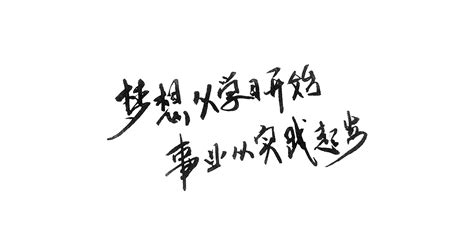 梦想从学习开始
事业从实践起步